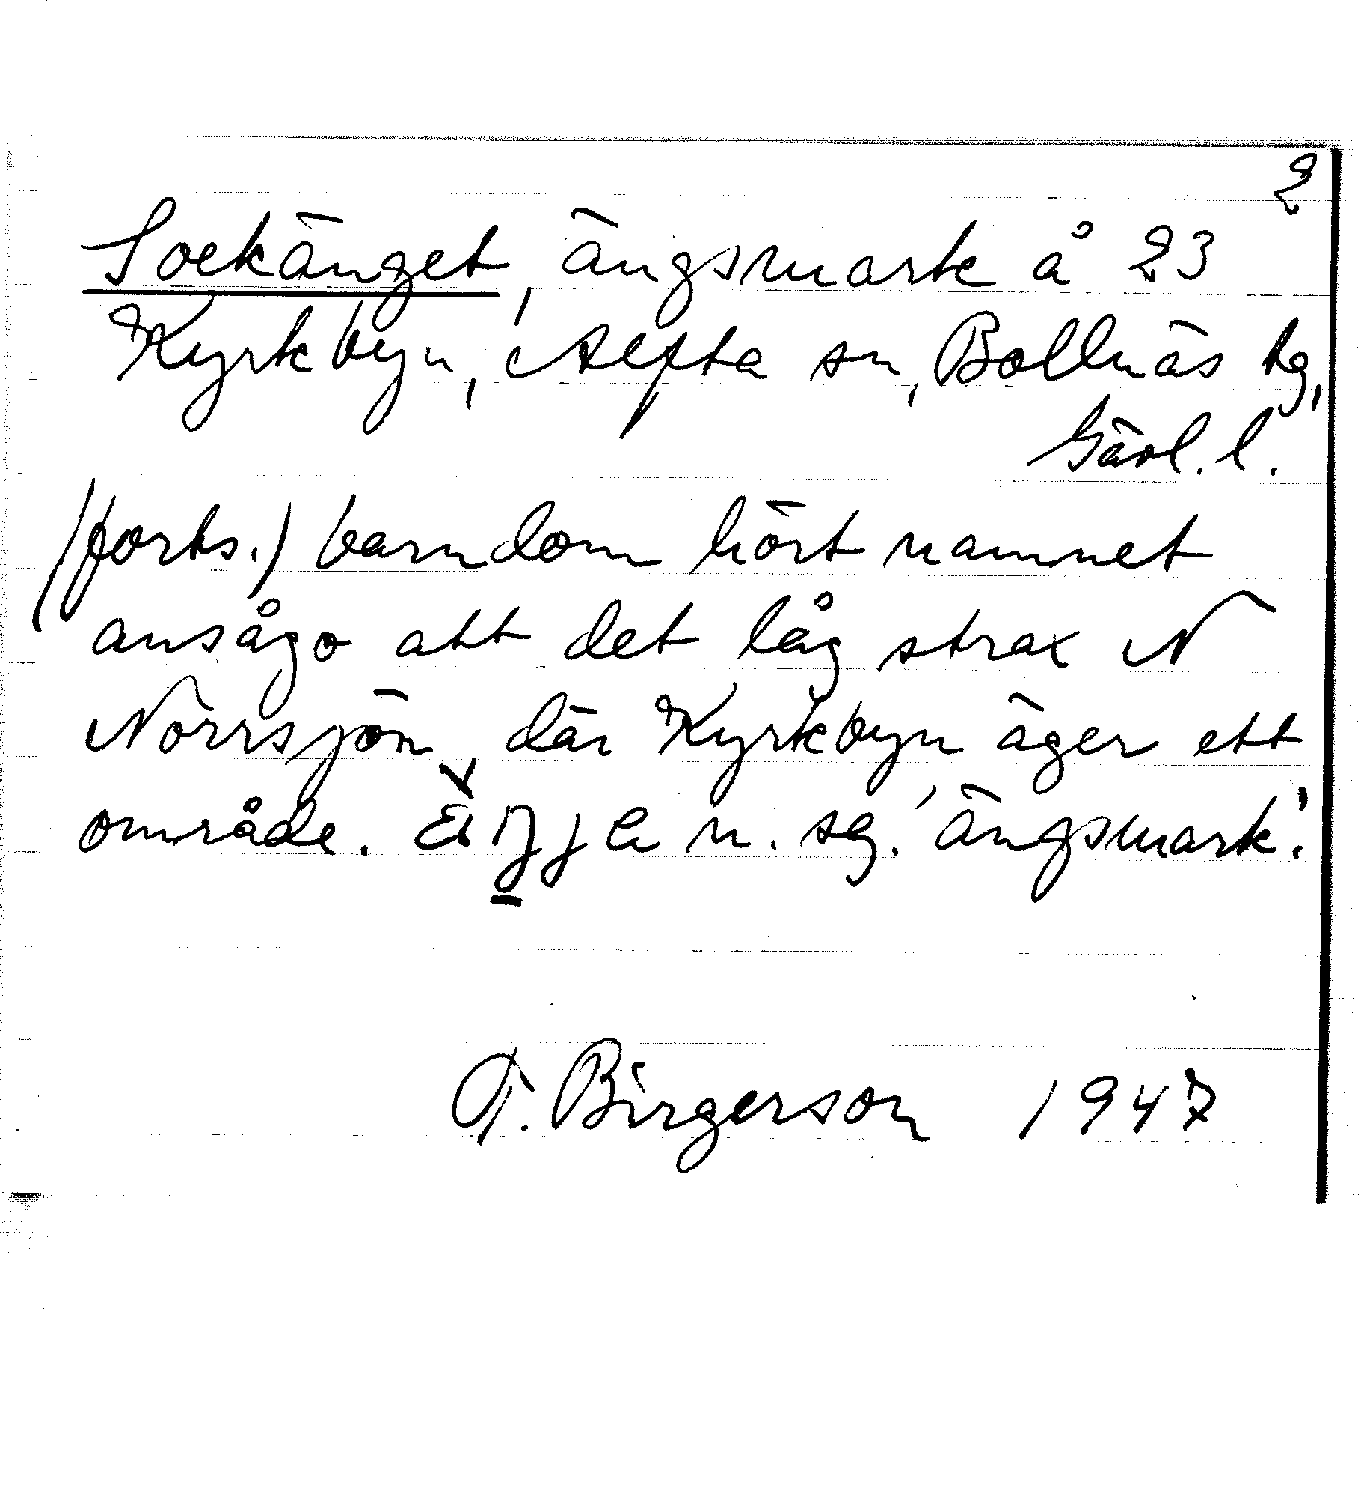 2
Sockänget, ängsmark å 23
Kyrkbyn, Alfta sn, Bollnäs tg,
Gävl. l.
(forts.) barndom hört namnet
ansågo att det låg strax N
Norrsjön, där Kyrkbyn äger ett
område. n. sg. 'ängsmark'.
T. Birgerson 1947